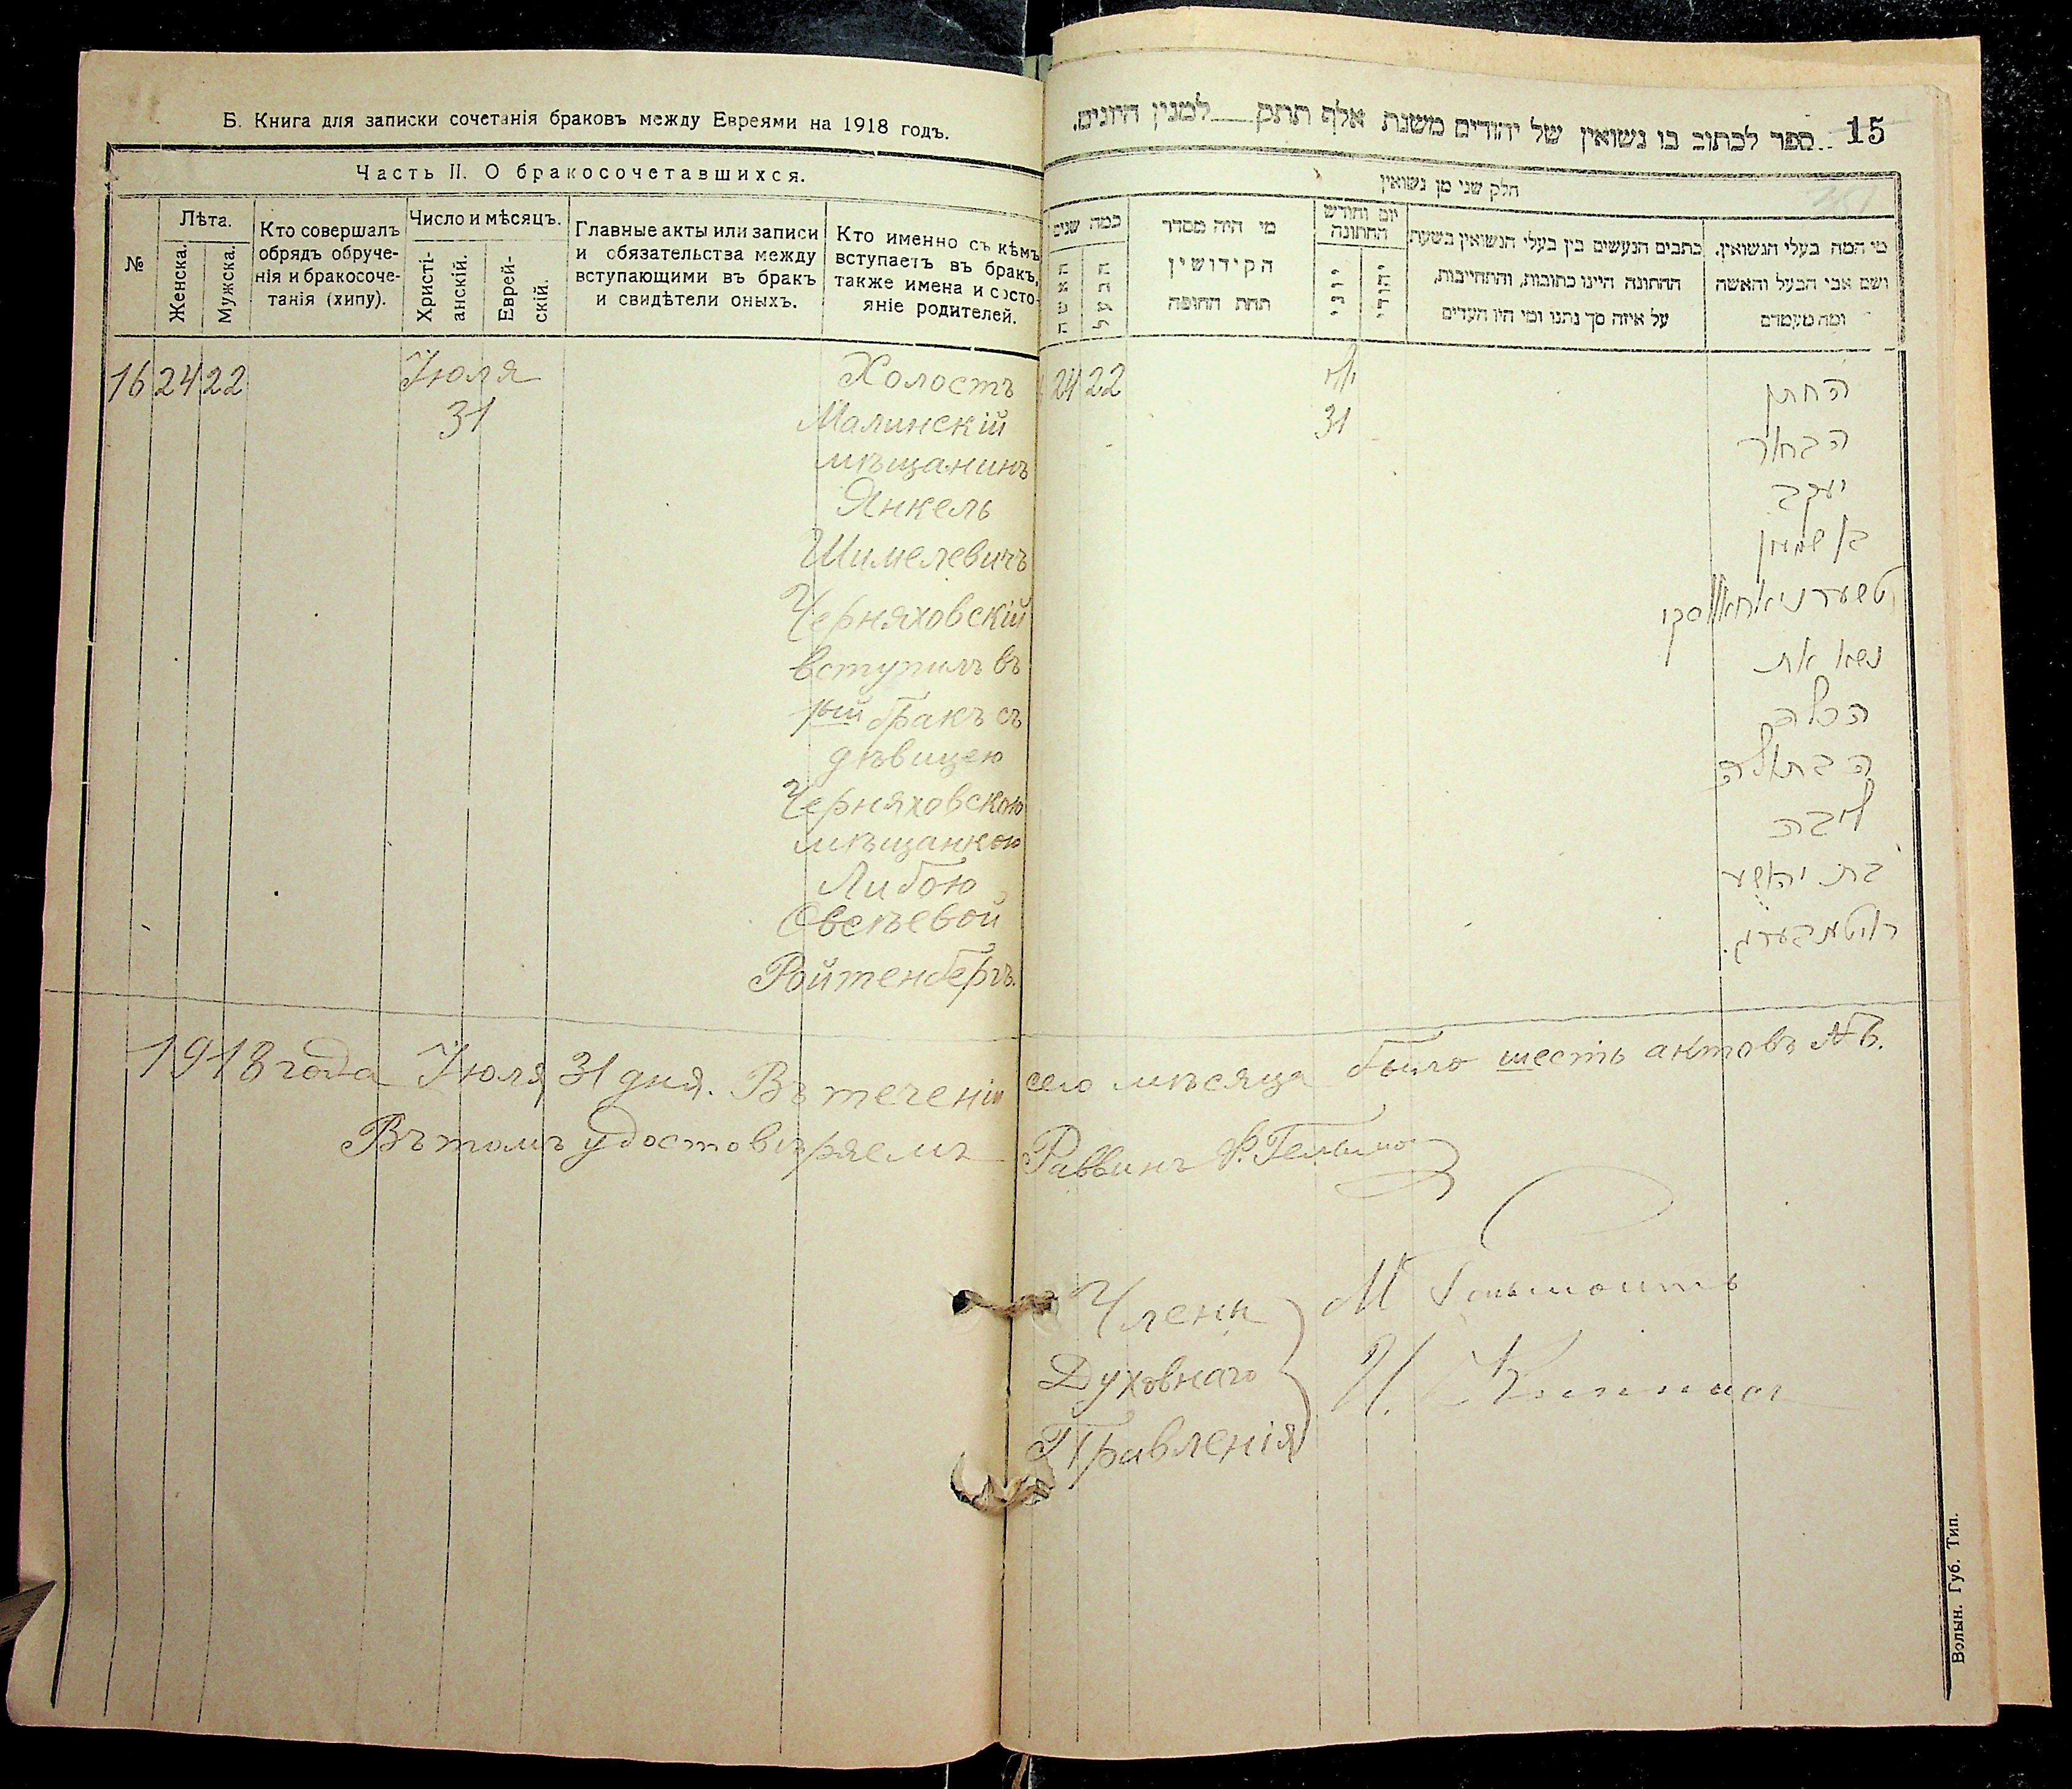 Б. Книга для записки сочетанія браковъ между Евреями на 1918 годъ.
Часть II. О бракосочетавшихся.
№
Лѣта.
Женска.
Мужска.
Кто совершалъ
обрядъ обруче-
нія и бракосоче-
танія (хипу).
Число и мѣсяцъ.
Христі-
анскій.
Еврей-
скій.
Главные акты или записи
и обязательства между
вступающими въ бракъ
и свидѣтели оныхъ.
Кто именно съ кѣмъ
вступаетъ въ бракъ,
также имена и состо-
яніе родителей.
16 24 22 Іюля Холостъ
31 Малинскій
мѣщанинъ
Янкель
Шимелевичъ
Черняховскій
вступилъ въ
1ый бракъ съ
дѣвицею
Черняховскою
мѣщанкою
Либою
Овсѣевой
Ройтенбергъ.
15
ספר לכתוב בו נשואין של יהודים משנת אלף תתק למנין היונים.
חלק שני מן נשואין
מי המה בעלי הנשואין,
ושם אבי הבעל והאשה
ומה מעמדם
כתבים הנעשים בין בעלי הנשואין בשעת
החתונה היינו כתובות, והתחייבות,
על איזה סך נתנו ומי היו העדים
יום וחודש
החתונה
יהודי
יוני
מי היה מסדר
הקידושין
תחת החופה
כמה שנים
הבעל
האשה
24 22
יולי
31
החתן
הבחור
יעקב
בן שמעון
טשערניאחאווסקי
נשא את
הכלה
הבתולה
ליבה
בת יהושע
רויטענבערג.
1918 года Іюля 31 дня. Въ теченіи сего мѣсяца было шесть актовъ №6.
Въ томъ удостовѣряемъ Раввинъ
Члены
Духовнаго
Правленія
Волын. Губ. Тип.